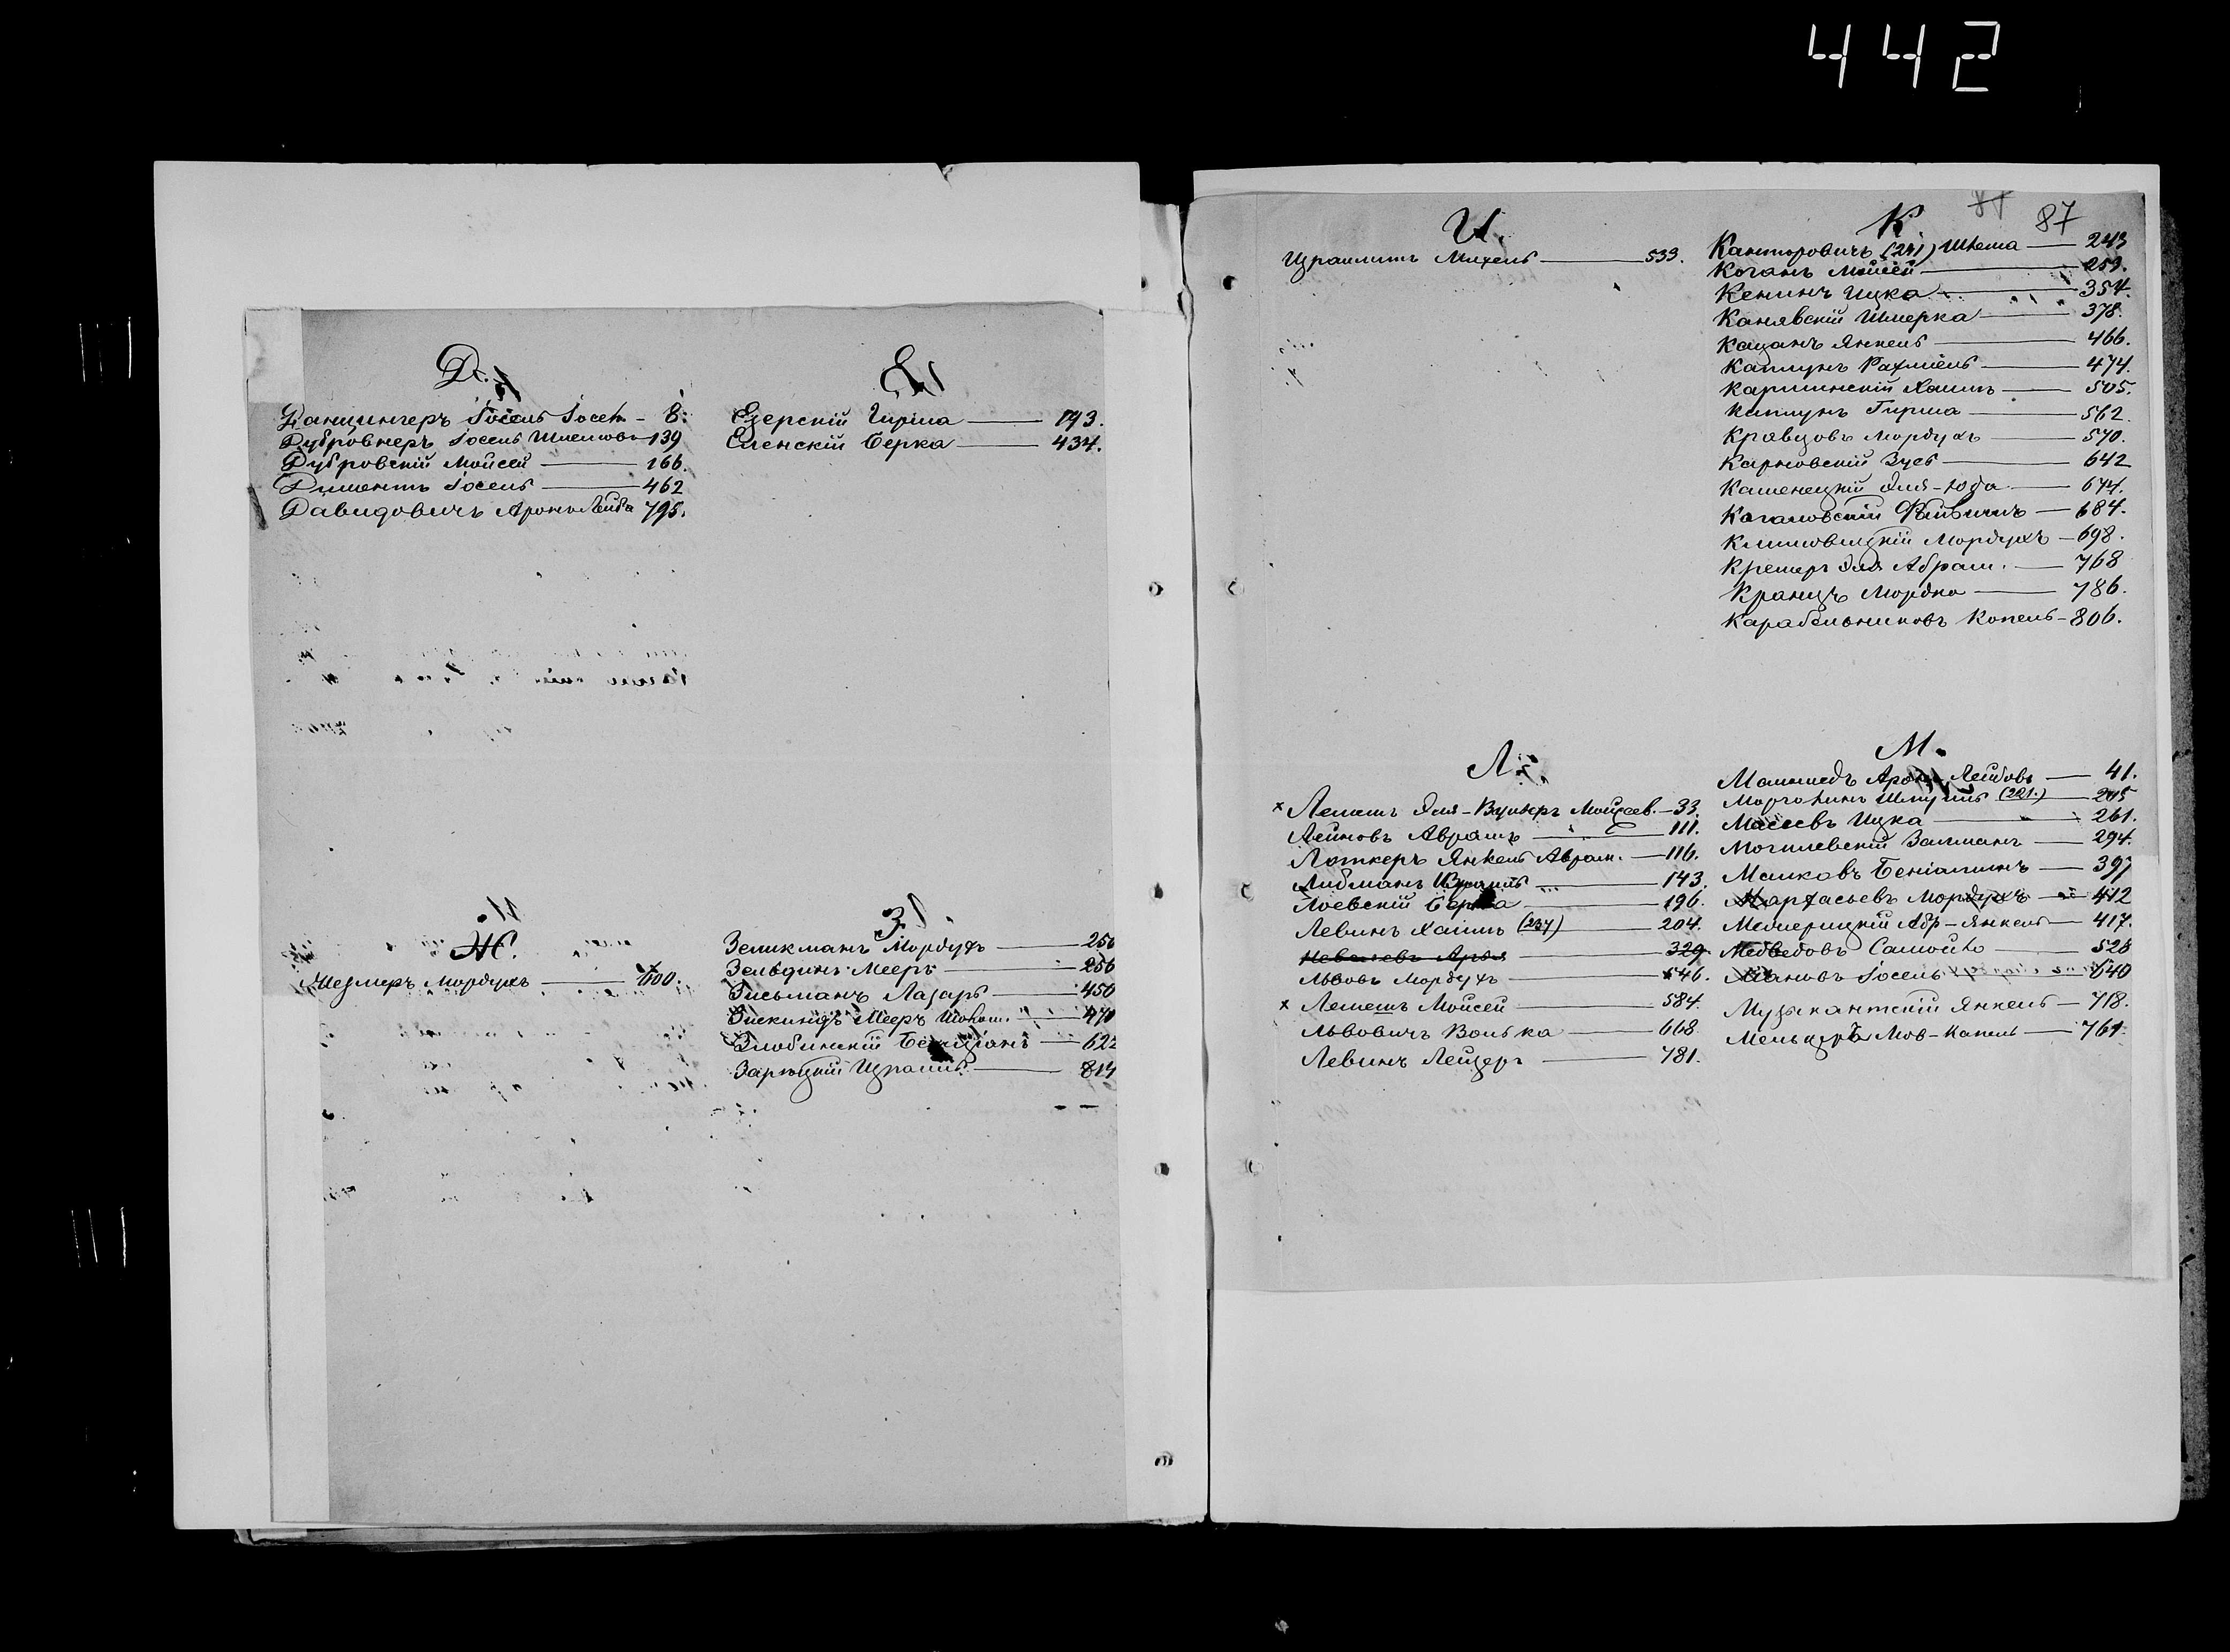 442
Д.
Данцингеръ Іосель Іосел. — 8.
Дубровнеръ Іосель Шлемовъ — 139
Дубровскій Мойсей — 166.
Диментъ Іосель — 462
Давидовичъ Аронъ Лейба 795.
Е.
Езерскій Гирша — 193.
Еленскій Берка — 434.
Ж.
Жезмеръ Мордухъ — 600.
З.
Зеликманъ Мордухъ — 250
Зельдинъ Мееръ — 256
Зисьманъ Лазарь — 450
Зискиндъ Мееръ — 470
Злобинскій — 622
Зарѣцкій Израиль — 814
87
И.
Израилитъ Михель — 533.
К.
Канторовичъ (241) Шлема — 243
Коганъ Мойсей — 253.
Кенинъ Ицка — 354.
Канявскій Шмерка — 378.
Кацанъ Янкель — 466.
Каплунъ Рахміель — 474.
Карпинскій Хаимъ — 505.
Каплунъ Гирша — 562.
Кравцовъ Мордухъ — 570.
Карповскій Зусь — 642
Каменецкій Эля-Юда — 674.
Кагановскій — 684.
Климовицкій Мордухъ — 698.
Кремеръ Эля Абрам. — 768
Кранцъ Мордко — 786.
Карабельниковъ Копель — 806.
Л.
x Лемешъ Эля- Мойсеев. — 33.
Лейновъ Авраамъ — 111.
Лоткеръ Янкель Аврам. — 116.
Либманъ Израиль — 143.
Лоевскій Берка — 196.
Левинъ Хаимъ (237) — 204.
329
Львовъ Мордухъ — 546.
x Лемешъ Мойсей — 584.
Львовичъ Волька — 668.
Левинъ Лейзеръ — 781.
М.
Аронъ Лейбовъ — 41.
Шмуиль (221.) — 245
Ицка — 261.
Могилевскій Залманъ — 294.
Малковъ Беніаминъ — 397
Мордухъ — 412
Межерицкій Абр-Янкель — 417.
Медвѣдовъ Самойло — 528
Іосель — 640
Музыкантскій Янкель — 718.
Мельцеръ Мов-Капель — 761.